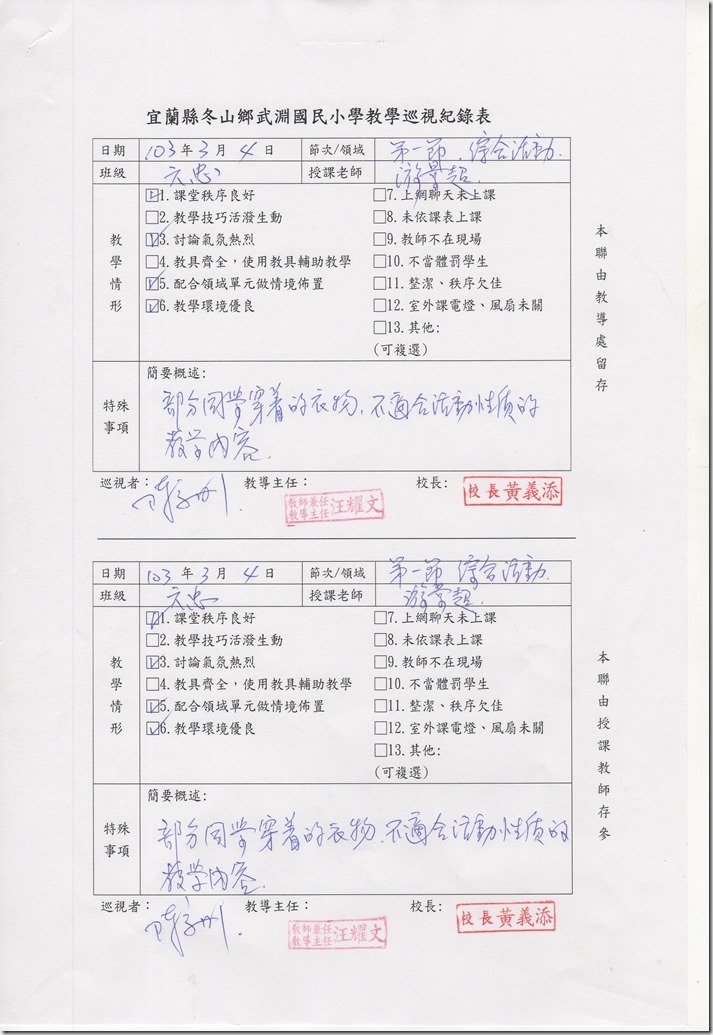 宜蘭縣冬山鄉武淵國民小學教學巡視紀錄表
日期 103年3月4日 節次/領域 第一節.綜合活動.
班級 六忠 授課老師
教學情形
☑1.課堂秩序良好
□2.教學技巧活潑生動
☑3.討論氣氛熱烈
□4.教具齊全,使用教具輔助教學
☑5.配合領域單元做情境佈置
☑6.教學環境優良
□7.上網聊天未上課
□8.未依課表上課
□9.教師不在現場
□10.不當體罰學生
□11.整潔、秩序欠佳
□12.室外課電燈、風扇未關
□13.其他:
(可複選)
特殊事項
簡要概述:
部分同學穿着的衣物,不適合活動性质的
教学內容.
巡視者: 教導主任: 校長:
教師兼任
教導主任 汪耀文
校長黃義添
本聯由教導處留存
日期 103年3月4日 節次/領域 第一節 綜合活動.
班級 六忠 授課老師
教學情形
☑1.課堂秩序良好
□2.教學技巧活潑生動
☑3.討論氣氛熱烈
□4.教具齊全,使用教具輔助教學
☑5.配合領域單元做情境佈置
☑6.教學環境優良
□7.上網聊天未上課
□8.未依課表上課
□9.教師不在現場
□10.不當體罰學生
□11.整潔、秩序欠佳
□12.室外課電燈、風扇未關
□13.其他:
(可複選)
特殊事項
簡要概述:
部分同學穿着的衣物,不適合活動性质的
教学內容.
巡視者: 教導主任: 校長:
教師兼任
教導主任 汪耀文
校長黃義添
本聯由授課教師存參